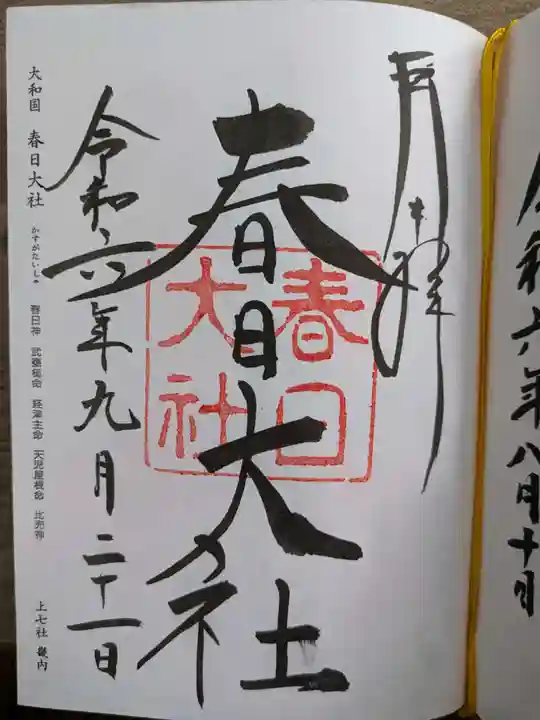 奉拝
春日大社
春日大社
令和六年九月二十一日
大和国 春日大社 かすがたいしゃ 春日神 武甕槌命 経津主命 天児屋根命 比売神 上七社 畿内
令和六年八月十日